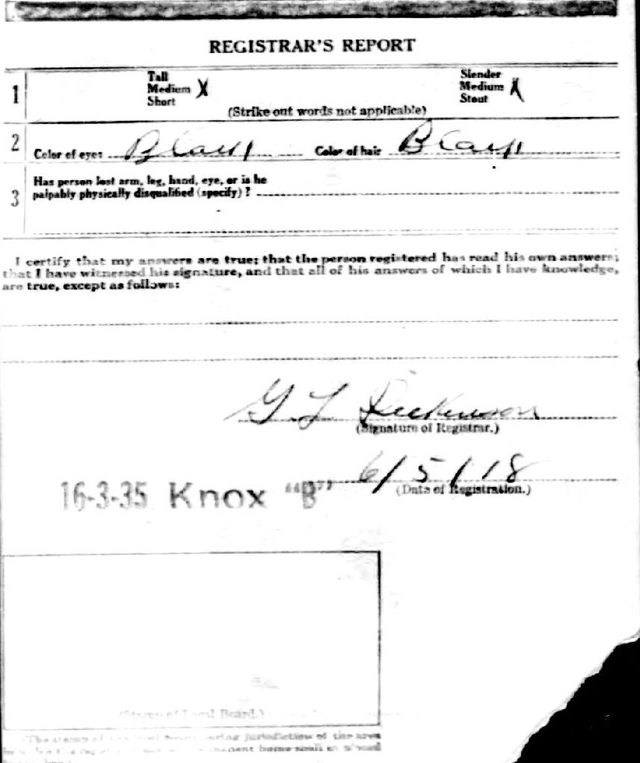 REGISTRAR'S REPORT
1 Tall Slender
Medium X Medium X
Short Stout
(Strike out words not applicable)
2 Color of eyes Black Color of hair Black
3 Has person lost arm, leg, hand, eye, or is he
palpably physically disqualified (specify)?
I certify that my answers are true; that the person registered has read his own answers;
that I have witnessed his signature, and that all of his answers of which I have knowledge,
are true, except as follows:
G L Dickinson
(Signature of Registrar.)
6/5/18
16-3-35 Knox "B"
(Date of Registration.)
Local Board.)
jurisdiction of the area